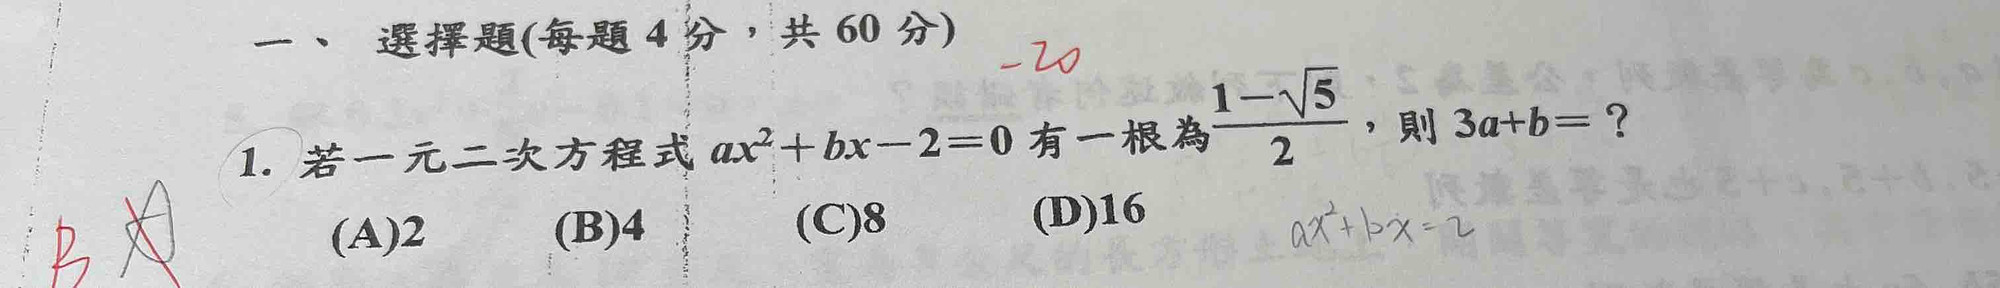 一、 選擇題(每題 4 分，共 60 分)
-20
1. 若一元二次方程式 ax²+bx-2=0 有一根為 \frac{1-\sqrt{5}}{2}，則 3a+b=？
(A)2 (B)4 (C)8 (D)16
ax²+bx=2
B A